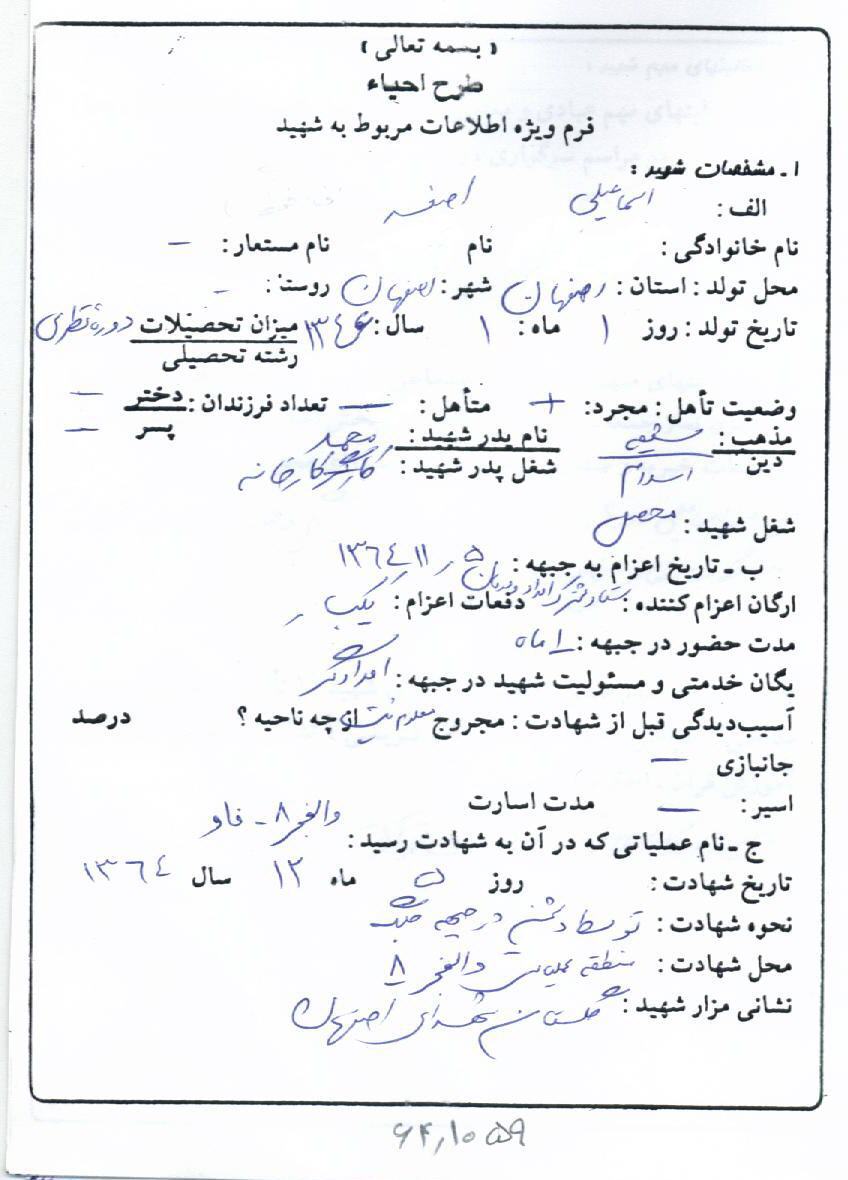 ( بسمه تعالی )
طرح احیاء
فرم ویژه اطلاعات مربوط به شهید
۱ ـ مشخصات شهید :
الف : اسماعیلی اصغر
نام خانوادگی : نام نام مستعار : —
محل تولد : استان : اصفهان شهر : اصفهان روستا : —
تاریخ تولد : روز ۱ ماه : ۱ سال : ۱۳۴۶ میزان تحصیلات دوره نظری
رشته تحصیلی
وضعیت تأهل : مجرد : + متأهل : — تعداد فرزندان : دختر —
پسر —
مذهب : شیعه نام پدر شهید : محمد
دین اسلام شغل پدر شهید : کارگر کارخانه
شغل شهید : محصل
ب ـ تاریخ اعزام به جبهه : ۵ ر ۱۱ ر ۱۳۶۴
ارگان اعزام کننده : ستاد مشترک امداد و درمان دفعات اعزام : یکبار
مدت حضور در جبهه : ۱ ماه
یگان خدمتی و مسئولیت شهید در جبهه : امدادگر
آسیب‌دیدگی قبل از شهادت : مجروح معلوم نیست از چه ناحیه ؟ درصد
جانبازی —
اسیر : — مدت اسارت
ج ـ نام عملیاتی که در آن به شهادت رسید : والفجر ۸ ـ فاو
تاریخ شهادت : روز ۵ ماه ۱۲ سال ۱۳۶۴
نحوه شهادت : توسط دشمن در جبهه جنگ
محل شهادت : منطقه عملیاتی والفجر ۸
نشانی مزار شهید : گلستان شهدای اصفهان
۶۴,۱۰۵۹